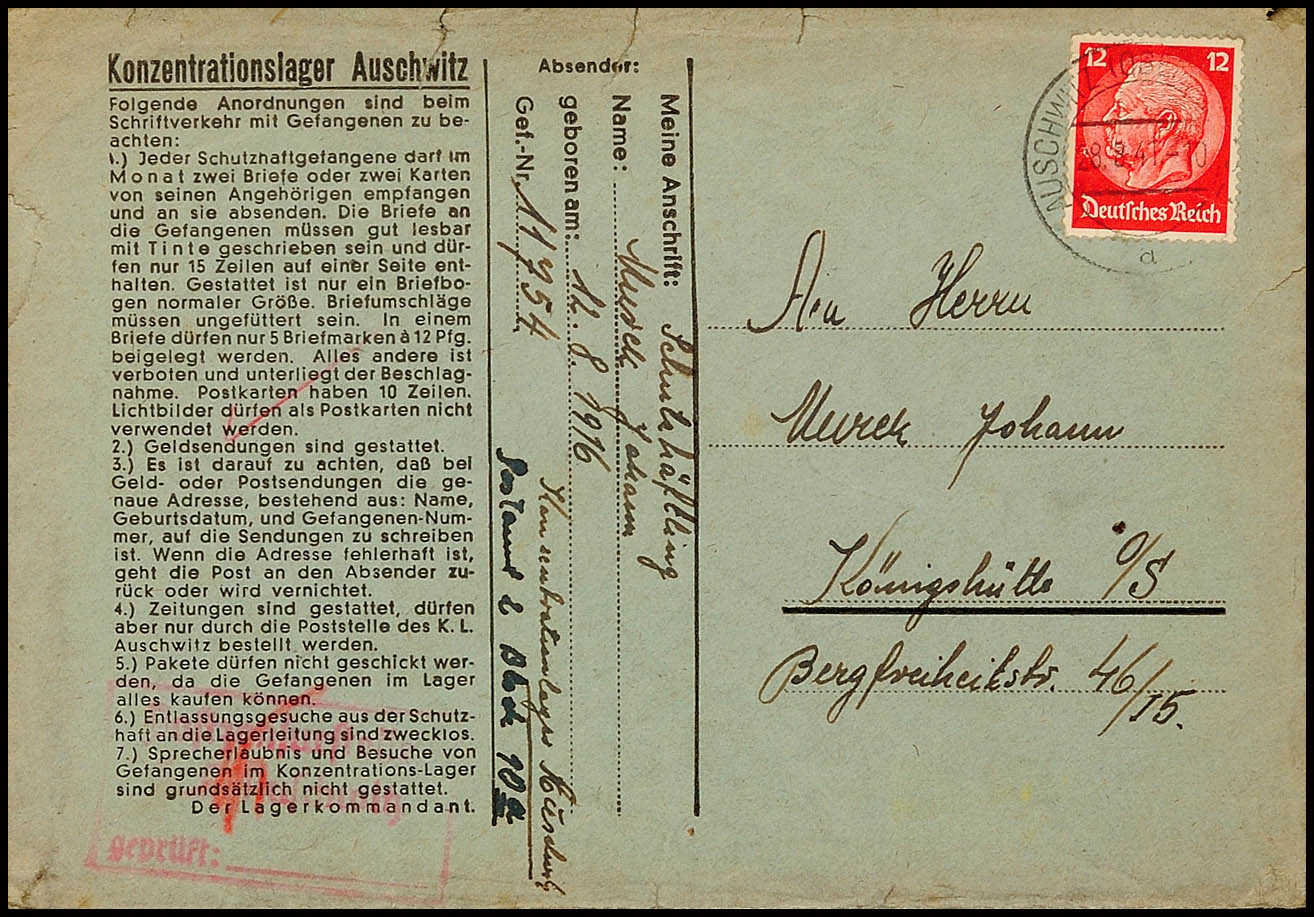 Konzentrationslager Auschwitz
Folgende Anordnungen sind beim
Schriftverkehr mit Gefangenen zu be-
achten:
1.) Jeder Schutzhaftgefangene darf im
Monat zwei Briefe oder zwei Karten
von seinen Angehörigen empfangen
und an sie absenden. Die Briefe an
die Gefangenen müssen gut lesbar
mit Tinte geschrieben sein und dür-
fen nur 15 Zeilen auf einer Seite ent-
halten. Gestattet ist nur ein Briefbo-
gen normaler Größe. Briefumschläge
müssen ungefüttert sein. In einem
Briefe dürfen nur 5 Briefmarken à 12 Pfg.
beigelegt werden. Alles andere ist
verboten und unterliegt der Beschlag-
nahme. Postkarten haben 10 Zeilen.
Lichtbilder dürfen als Postkarten nicht
verwendet werden.
2.) Geldsendungen sind gestattet.
3.) Es ist darauf zu achten, daß bei
Geld- oder Postsendungen die ge-
naue Adresse, bestehend aus: Name,
Geburtsdatum, und Gefangenen-Num-
mer, auf die Sendungen zu schreiben
ist. Wenn die Adresse fehlerhaft ist,
geht die Post an den Absender zu-
rück oder wird vernichtet.
4.) Zeitungen sind gestattet, dürfen
aber nur durch die Poststelle des K. L.
Auschwitz bestellt werden.
5.) Pakete dürfen nicht geschickt wer-
den, da die Gefangenen im Lager
alles kaufen können.
6.) Entlassungsgesuche aus der Schutz-
haft an die Lagerleitung sind zwecklos.
7.) Sprecherlaubnis und Besuche von
Gefangenen im Konzentrations-Lager
sind grundsätzlich nicht gestattet.
Der Lagerkommandant.
geprüft:
Absender:
Meine Anschrift: Schutzhäftling
Name: Murek Johann
geboren am: 12. 8. 1916
Gef.-Nr. 11954
Postamt 2 Block 10a
12 12
Deutsches Reich
AUSCHWITZ
a
An Herrn
Murek Johann
Königshütte O/S
Bergfreiheitstr. 46/15.